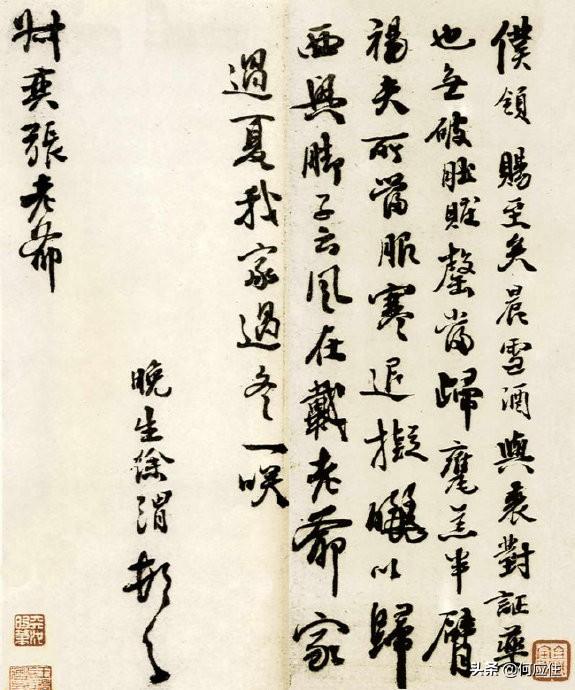 僕領賜至矣晨雪酒與裘對証藥
也无破肚賍罄當歸甕羔半臂
褐夫所當服寒退擬曬以歸
西興脚子云風在戴老爺家
過夏我家過冬一咲
晚生徐渭頓首
張老爺
头条 @何应住